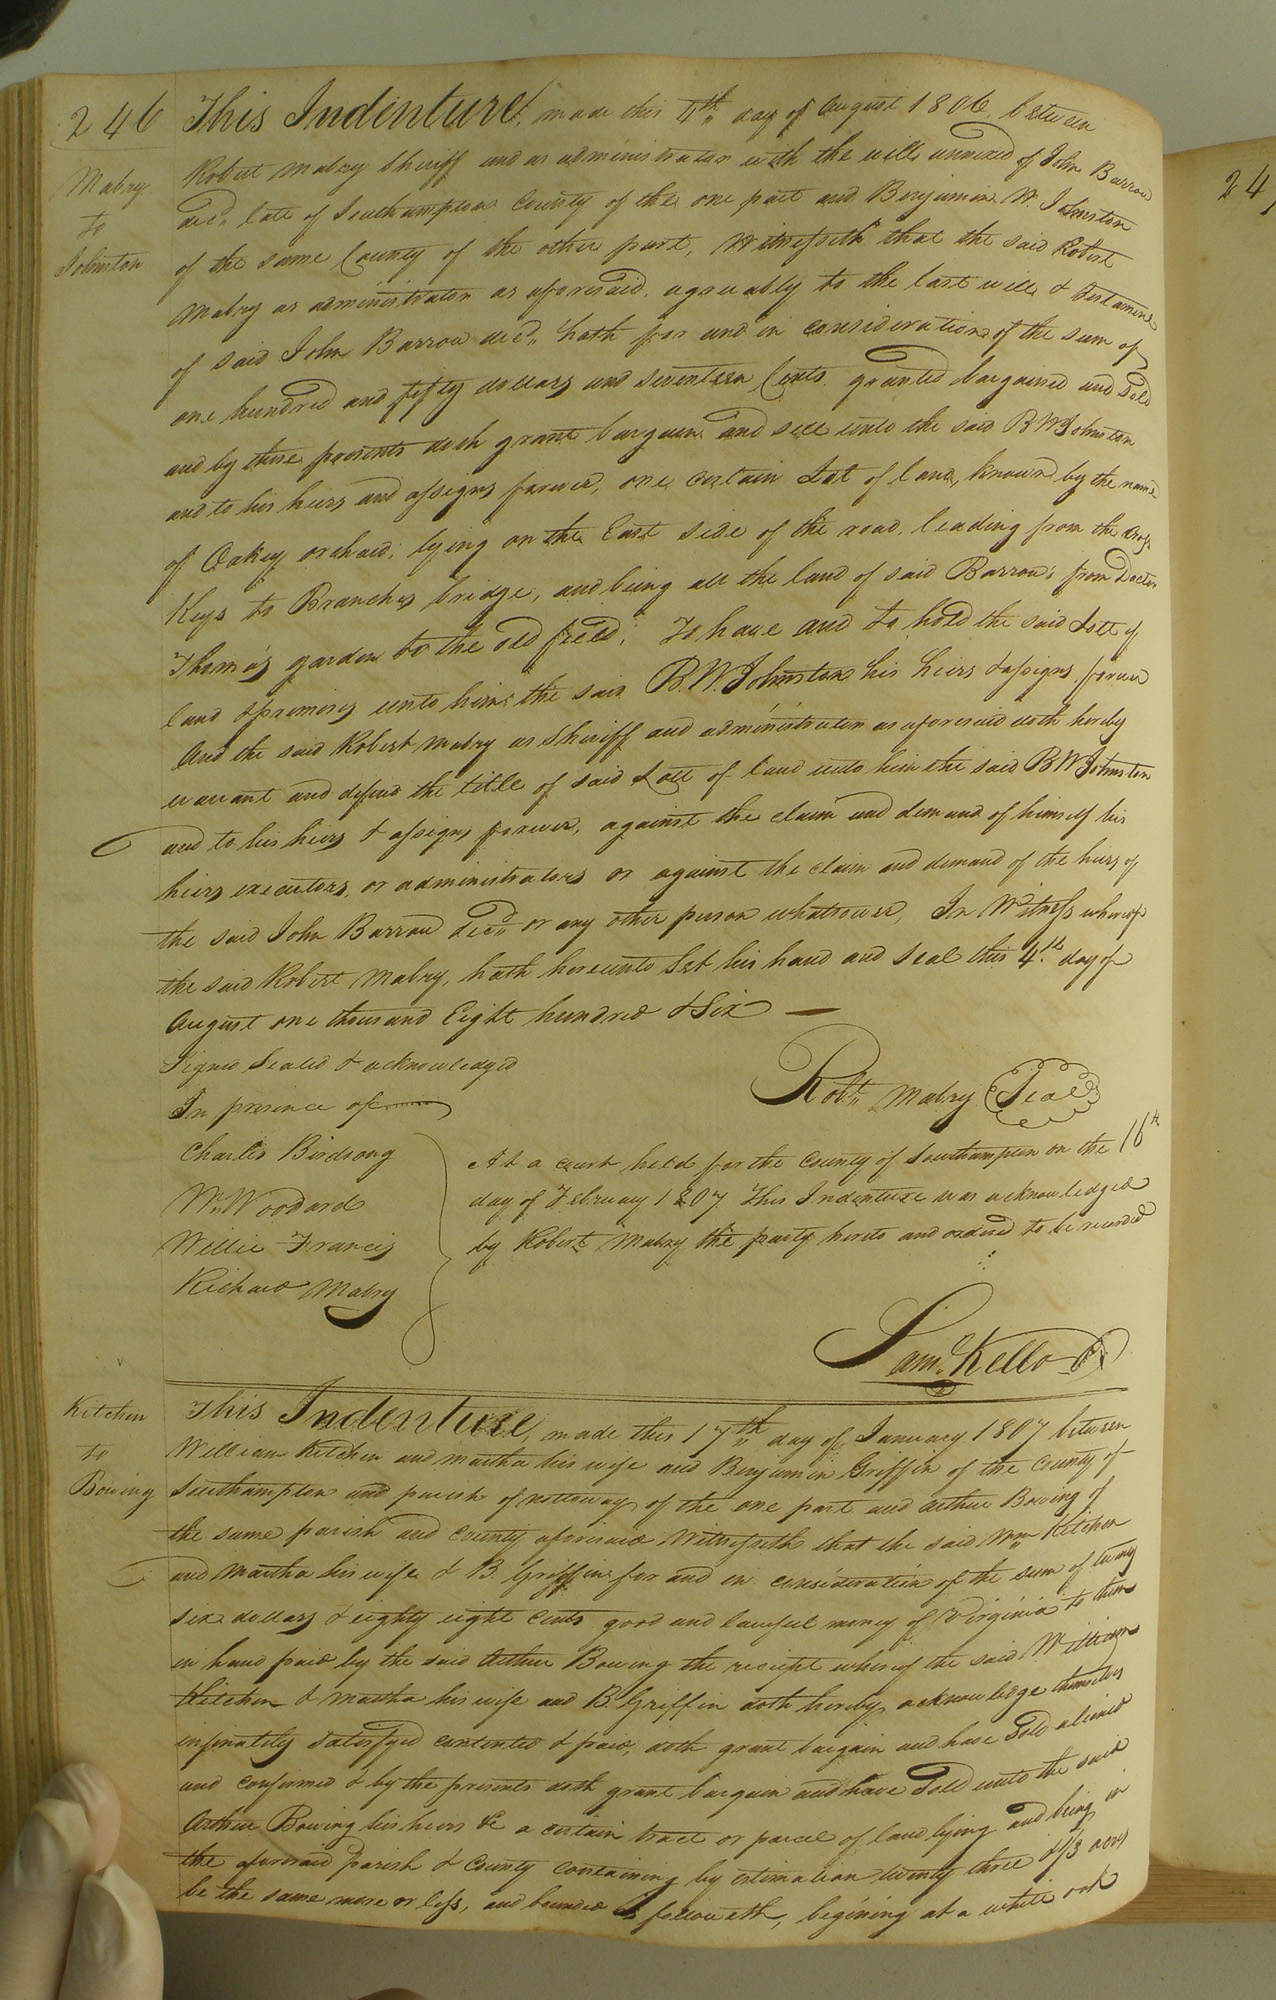 246
This Indenture, made this 4th day of August 1806. between
Mabry
to
Johnston
Robert Mabry Sheriff and as administrator with the will annexed of John Barrow
decd. late of Southampton County of the one part and Benjamin W. Johnston
of the same County of the other part, Witnesseth that the said Robert
Mabry as administrator as aforesaid, agreeably to the last will & Testament
of said John Barrow decd. hath for and in consideration of the sum of
one hundred and fifty dollars and seventeen Cents granted bargained and sold
and by these presents doth grant bargain and sell unto the said B W Johnston
and to his heirs and assigns forever, one certain Lot of land, known by the name
of Oakey orchard, lying on the East side of the road, leading from the Cross
Keys to Branches bridge, and being all the land of said Barrow's from Doctor
Thomas's garden to the old field; To have and to hold the said Lott of
land & premises unto him the said B. W. Johnston his heirs & assigns forever
And the said Robert Mabry as Sheriff and administrator as aforesaid doth hereby
warrant and defend the title of said Lott of land unto him the said B W Johnston
and to his heirs & assigns forever, against the claim and demand of himself his
heirs executors, or administrators or against the claim and demand of the heirs of
the said John Barrow Decd. or any other person whatsoever, In Witness whereof
the said Robert Mabry, hath hereunto Set his hand and Seal this 4th. day of
August one thousand Eight hundred & Six
Signed Sealed & acknowledged
In presence of
Robt. Mabry Seal
Charles Birdsong
Wm Woodard
Willie Francis
Richard Mabry
At a court held for the County of Southampton on the 16th
day of February 1807 This Indenture was acknowledged
by Robert Mabry the party hereto and ordered to be recorded
Saml. Kello
Kitchen
to
Bowing
This Indenture, made this 17th day of January 1807 between
William Kitchen and Martha his wife and Benjamin Griffin of the County of
Southampton and parish of nottoway of the one part and Arthur Bowing of
the same parish and County aforesaid Witnesseth that the said Wm Kitchen
and Martha his wife & B. Griffin for and in consideration of the sum of twenty
six dollars & eighty eight cents good and lawful money of Virginia to them
in hand paid by the said Arthur Bowing the reciept whereof the said William
Kitchen & Martha his wife and B. Griffin doth hereby acknowledge themselves
infinately Satisfyed contented & paid, doth grant bargain and have Sold aliened
and confirmed & by the presents doth grant bargain and have Sold unto the said
Arthur Bowing his heirs &c a certain tract or parcel of land lying and being in
the aforesaid parish & County containing by estimation twenty three & 1/3 acres
be the same more or less, and bounded as followeth, begining at a white oak
24